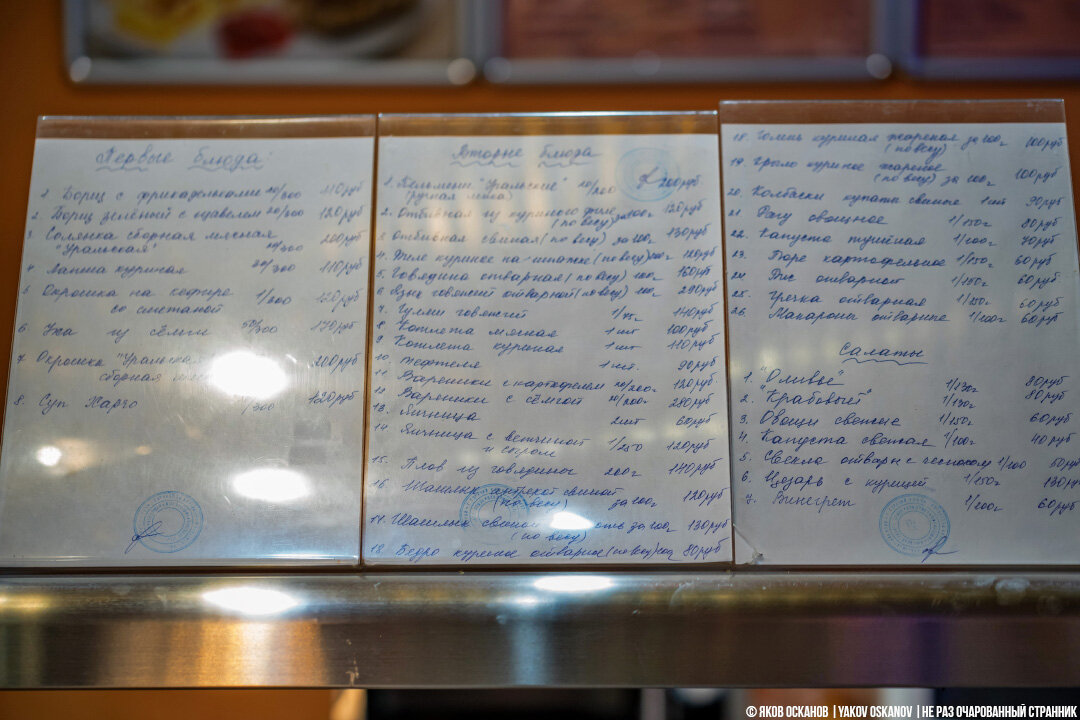 Первые блюда
1. Борщ с фрикадельками 20/300 110руб
2. Борщ зелёный с щавелем 20/300 120руб
3. Солянка сборная мясная
"Уральская" 200руб
4. Лапша куриная 110руб
5. Окрошка на кефире 1/300 120руб
со сметаной
6. Уха из сёмги 50/300 170руб
7. Окрошка "Уральская 200руб
сборная
8. Суп Харчо 1/300 120руб
Вторые блюда
1. Пельмени "Уральские" 200руб
(ручная лепка)
2. Отбивная из куриного филе
(по весу) 100г 120руб
3. Отбивная свиная (по весу) за 100г 130руб
4. Филе куриное на шпажке (по весу) 100г 120руб
5. Говядина отварная (по весу) 100г 160руб
6 Язык говяжий отварной (по весу) 100г 290руб
7. Гуляш говяжий 1/75г 140руб
8 Котлета мясная 1шт 100руб
9. Котлета куриная 1шт 110руб
10. Тефтеля 1шт. 90руб
11. Вареники с картофелем 20/200г 120руб
12. Вареники с сёмгой 20/200г 280руб
13. Яичница 2шт 60руб
14 Яичница с ветчиной 1/250 120руб
и сыром
15. Плов из говядины 200г 140руб
16 Шашлык антрекот свиной
(по весу) за 100г 120руб
17. Шашлык за 100г 130руб
(по весу)
18. Бедро куриное отварное (по весу) 80руб
18. Голень куриная жареная за 100г 100руб
(по весу)
19. жареное
(по весу) за 100г 100руб
20. Колбаски купаты свиные 1шт 90руб
21. Рагу овощное 1/150г 80руб
22. Капуста тушёная 1/100г 70руб
23. Пюре картофельное 1/150г 60руб
24. Рис отварной 1/150г 60руб.
25. Гречка отварная 1/150г 60руб
26. Макароны отварные 1/200г 60руб
Салаты
1. "Оливье" 1/130г 80руб
2. "Крабовый" 1/130г 80руб
3. Овощи свежие 1/150г 60руб
4. Капуста свежая 1/100г 40руб
5. Свекла отварн с чесноком 1/100 50руб
6. Цезарь с курицей 1/150г 130руб
7. Винегрет 1/200г 60руб
© ЯКОВ ОСКАНОВ | YAKOV OSKANOV | НЕ РАЗ ОЧАРОВАННЫЙ СТРАННИК